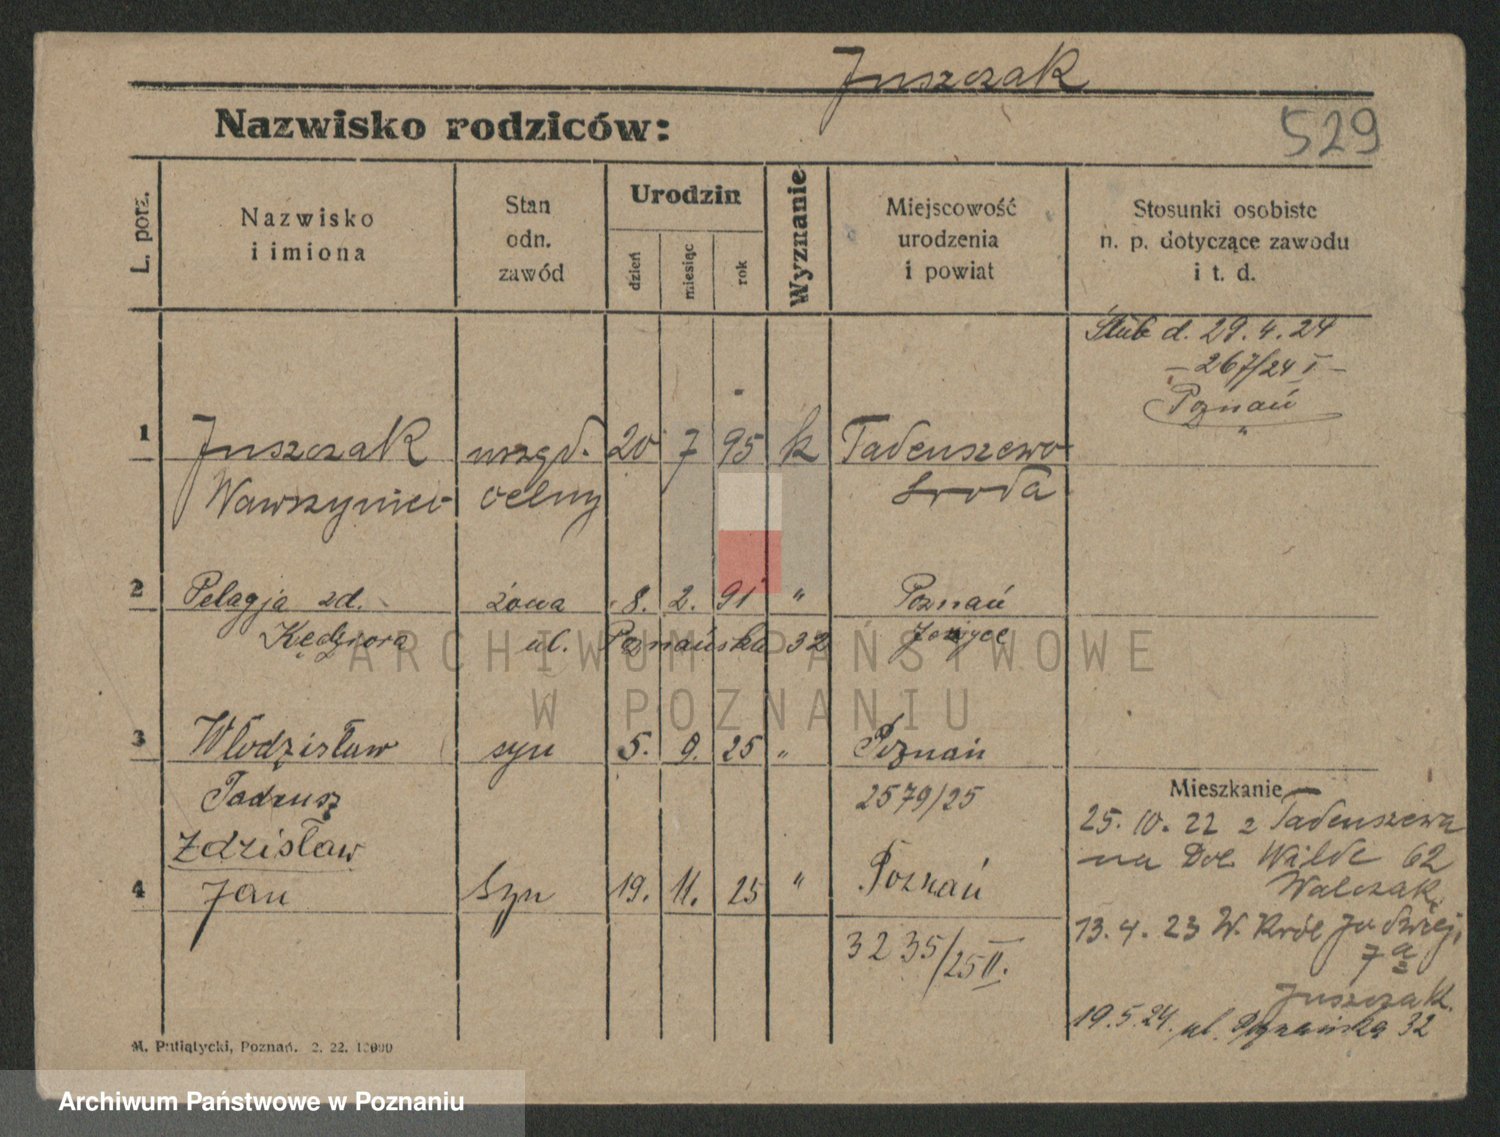 Juszczak
Nazwisko rodziców:
529
L. porz.
Nazwisko
i imiona
Stan
odn.
zawód
Urodzin
dzień
miesiąc
rok
Wyznanie
Miejscowość
urodzenia
i powiat
Stosunki osobiste
n. p. dotyczące zawodu
i t. d.
Ślub d. 29.4.24
- 267/24 I -
Poznań
1 Juszczak urzęd. 20 7 95 k Tadeuszewo
Wawrzyniec celny Środa
2 Pelagja zd. żona 8. 2. 91 " Poznań
Kędziora ul. Poznańska 32 Jeżyce
ARCHIWUM PAŃSTWOWE
W POZNANIU
3 Włodzisław syn 5. 9. 25 " Poznań
Tadeusz 2579/25
Zdzisław
4 Jan Syn 19. 11. 25 " Poznań
3235/25 II.
Mieszkanie
25. 10. 22 z Tadeuszewa
na Dol. Wilde 62
Walczak
13. 4. 23 W. Król. Jadwigi
7a
Juszczak
19.5.24. ul. Poznańska 32
M. Putiatycki, Poznań. 2. 22. 10000
Archiwum Państwowe w Poznaniu